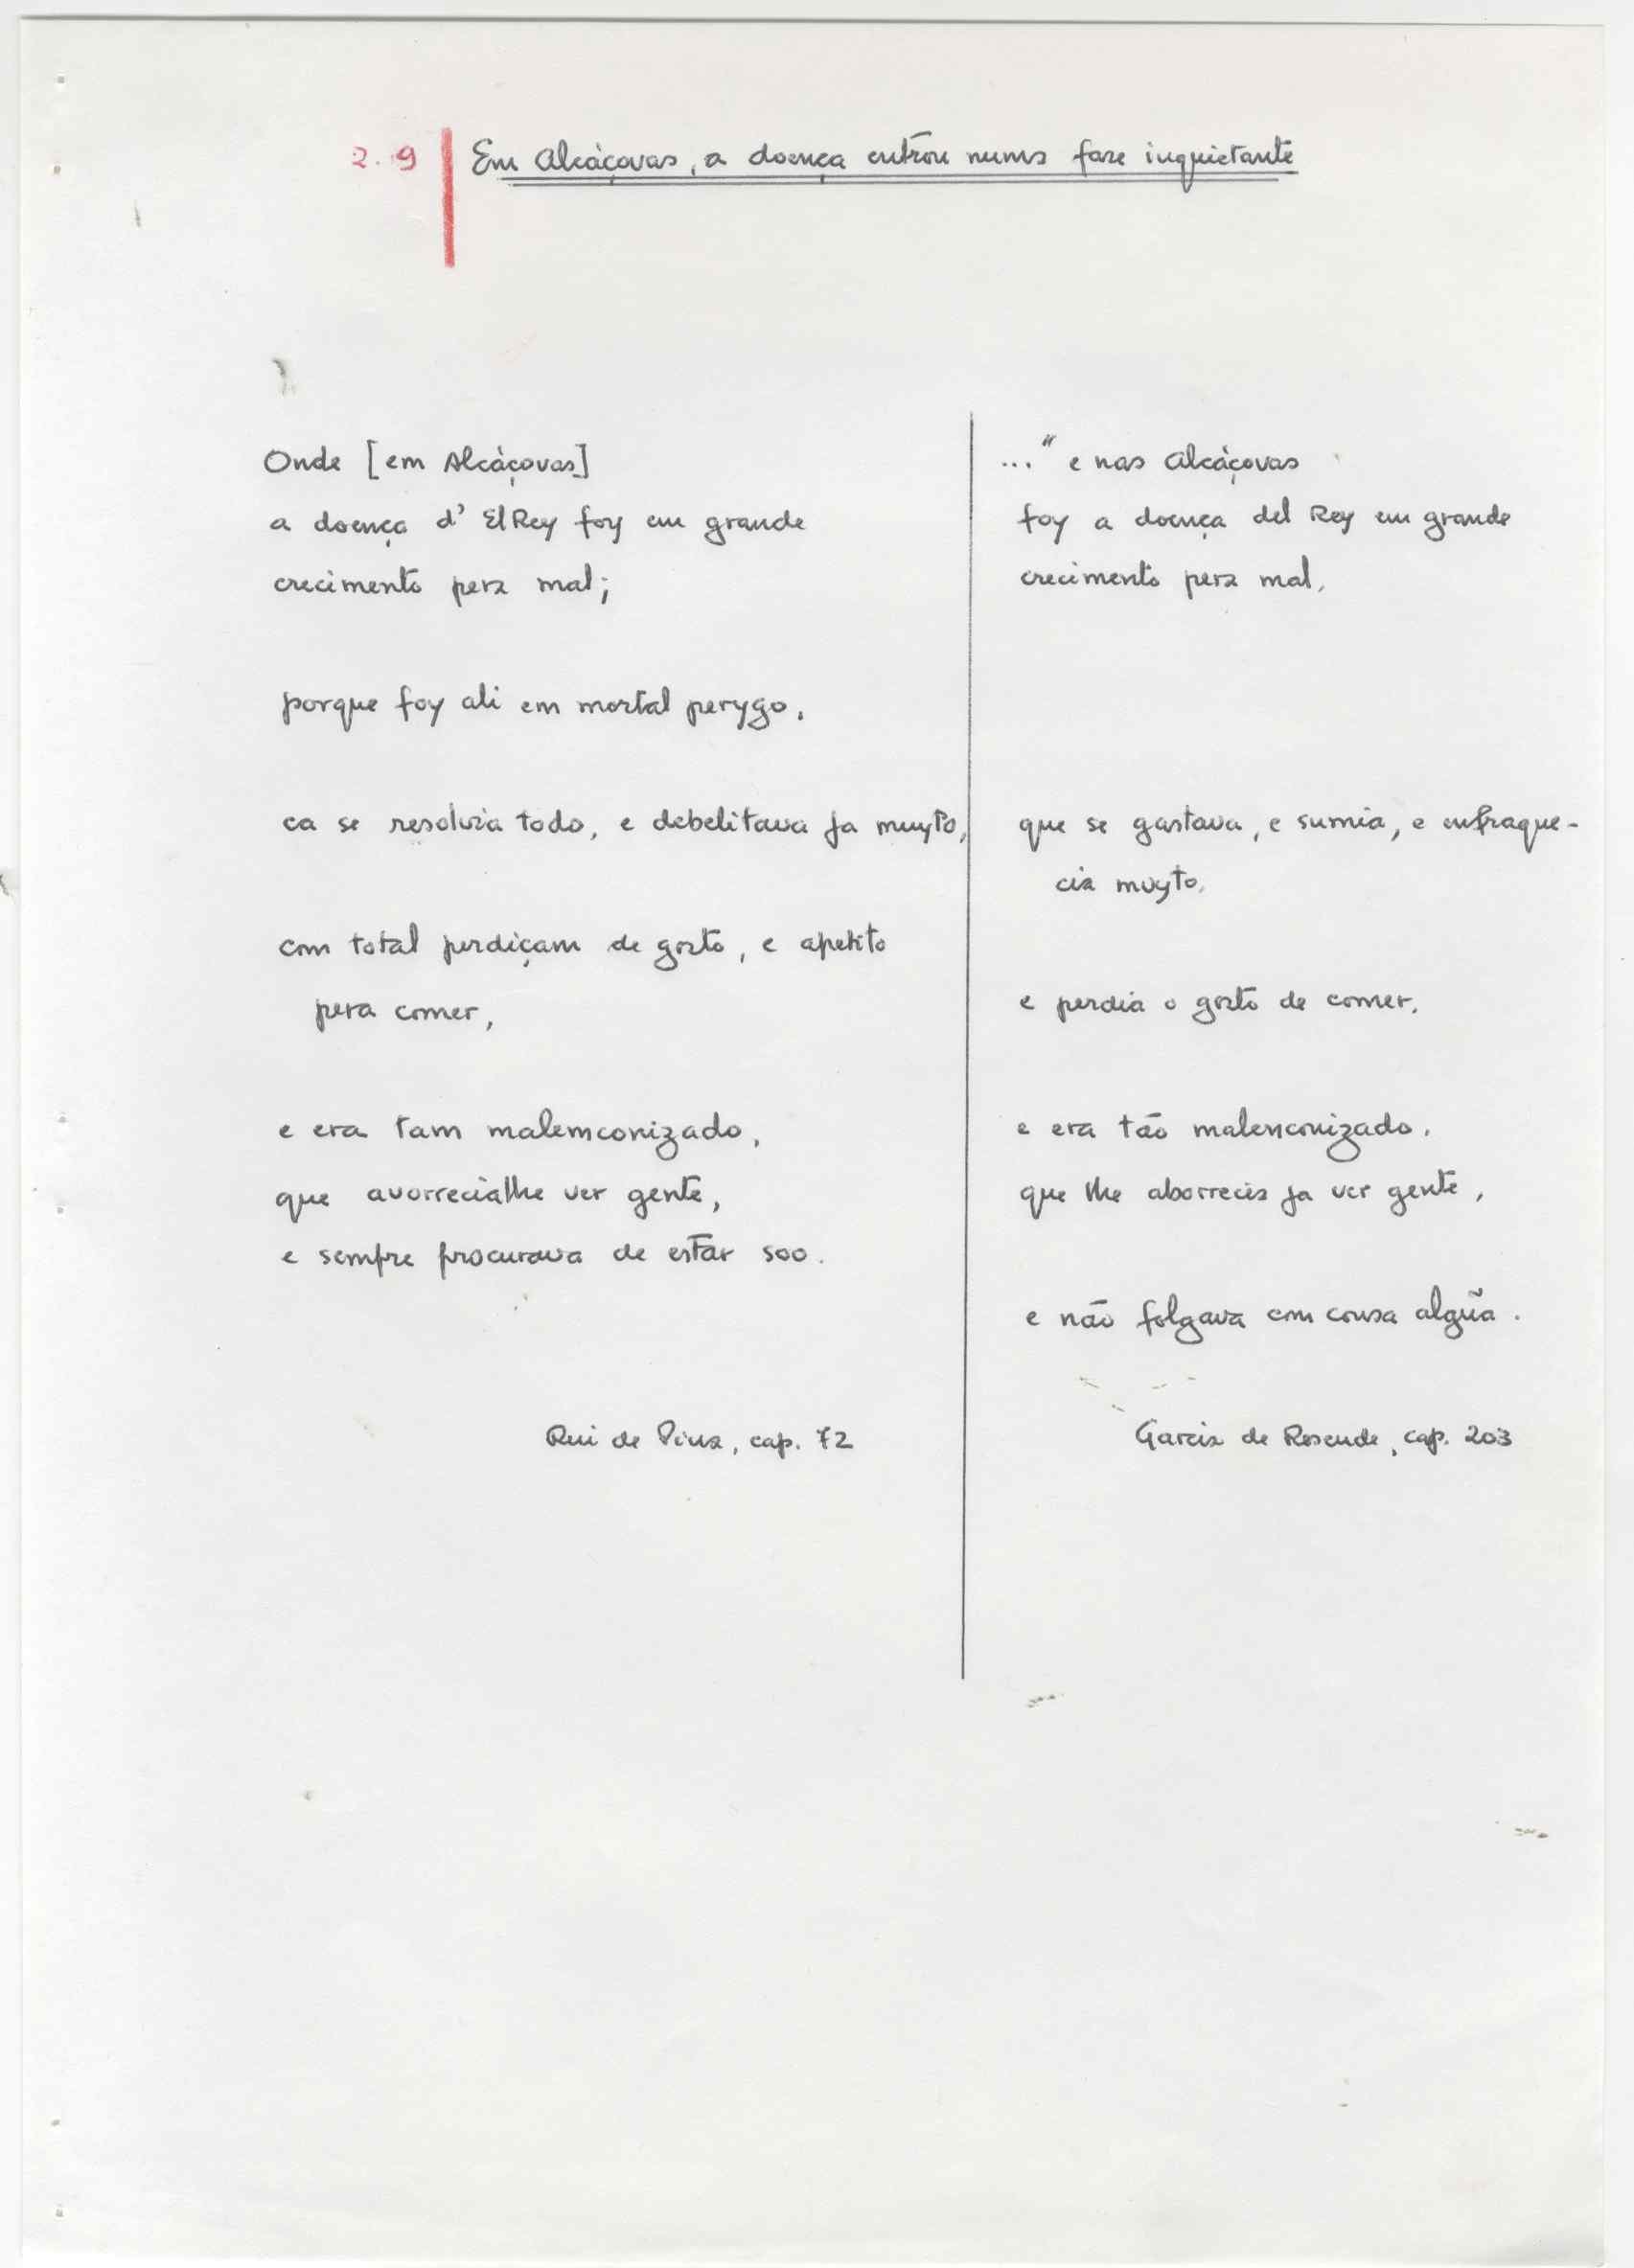 2.9 Em Alcáçovas, a doença entrou numa fase inquietante
Onde [em Alcáçovas]
a doença d' ElRey foy em grande
crecimento pera mal;
porque foy ali em mortal perygo,
ca se resolvia todo, e debelitava ja muyto,
com total perdiçam de gosto, e apetito
pera comer,
e era tam malemconizado,
que avorrecialhe ver gente,
e sempre procurava de estar soo.
Rui de Pina, cap. 72
..." e nas Alcáçovas
foy a doença del Rey em grande
crecimento pera mal,
que se gastava, e sumia, e enfraque-
cia muyto,
e perdia o gosto de comer,
e era tão malenconizado,
que lhe aborrecia ja ver gente,
e não folgava com cousa algũa.
Garcia de Resende, cap. 203